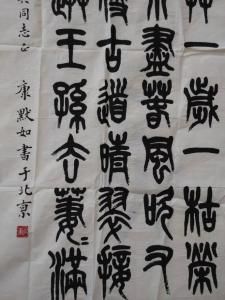 艸一歲一枯榮
不盡春風吹又
侵古道晴翠接
送王孫去萋〻滿
同志正
康默如書于北京